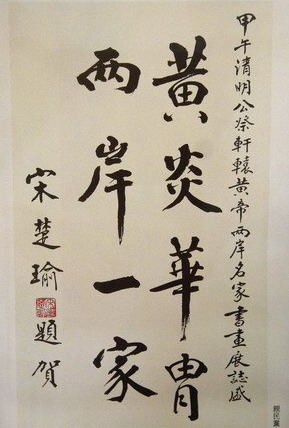 甲午清明公祭軒轅黃帝兩岸名家書畫展誌盛
黃炎華胄
兩岸一家
宋楚瑜題賀
親民黨